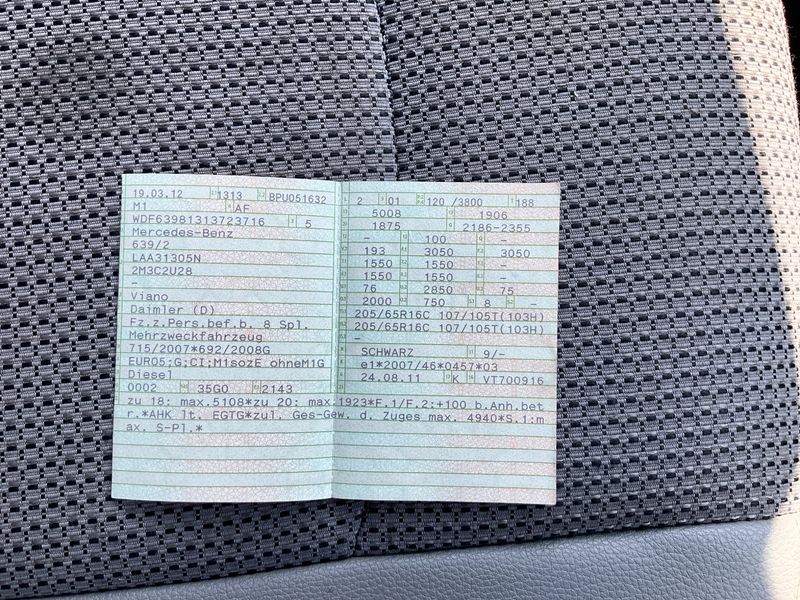 19.03.12 1313 BPU051632
M1 AF
WDF63981313723716 5
Mercedes-Benz
639/2
LAA31305N
2M3C2U28
-
Viano
Daimler (D)
Fz.z.Pers.bef.b. 8 Spl.
Mehrzweckfahrzeug
715/2007*692/2008G
EURO5;G;CI:M1sozE ohneM1G
Diesel
0002 35G0 2143
2 01 120 /3800 188
5008 1906
1875 2186-2355
- 100 -
193 3050 3050
1550 1550 -
1550 1550 -
76 2850 75
2000 750 8 -
205/65R16C 107/105T(103H)
205/65R16C 107/105T(103H)
-
SCHWARZ 9/-
e1*2007/46*0457*03
24.08.11 K VT700916
zu 18: max.5108*zu 20: max.1923*F.1/F.2:+100 b.Anh.bet
r.*AHK lt. EGTG*zul. Ges-Gew. d. Zuges max. 4940*S.1:m
ax. S-Pl.*